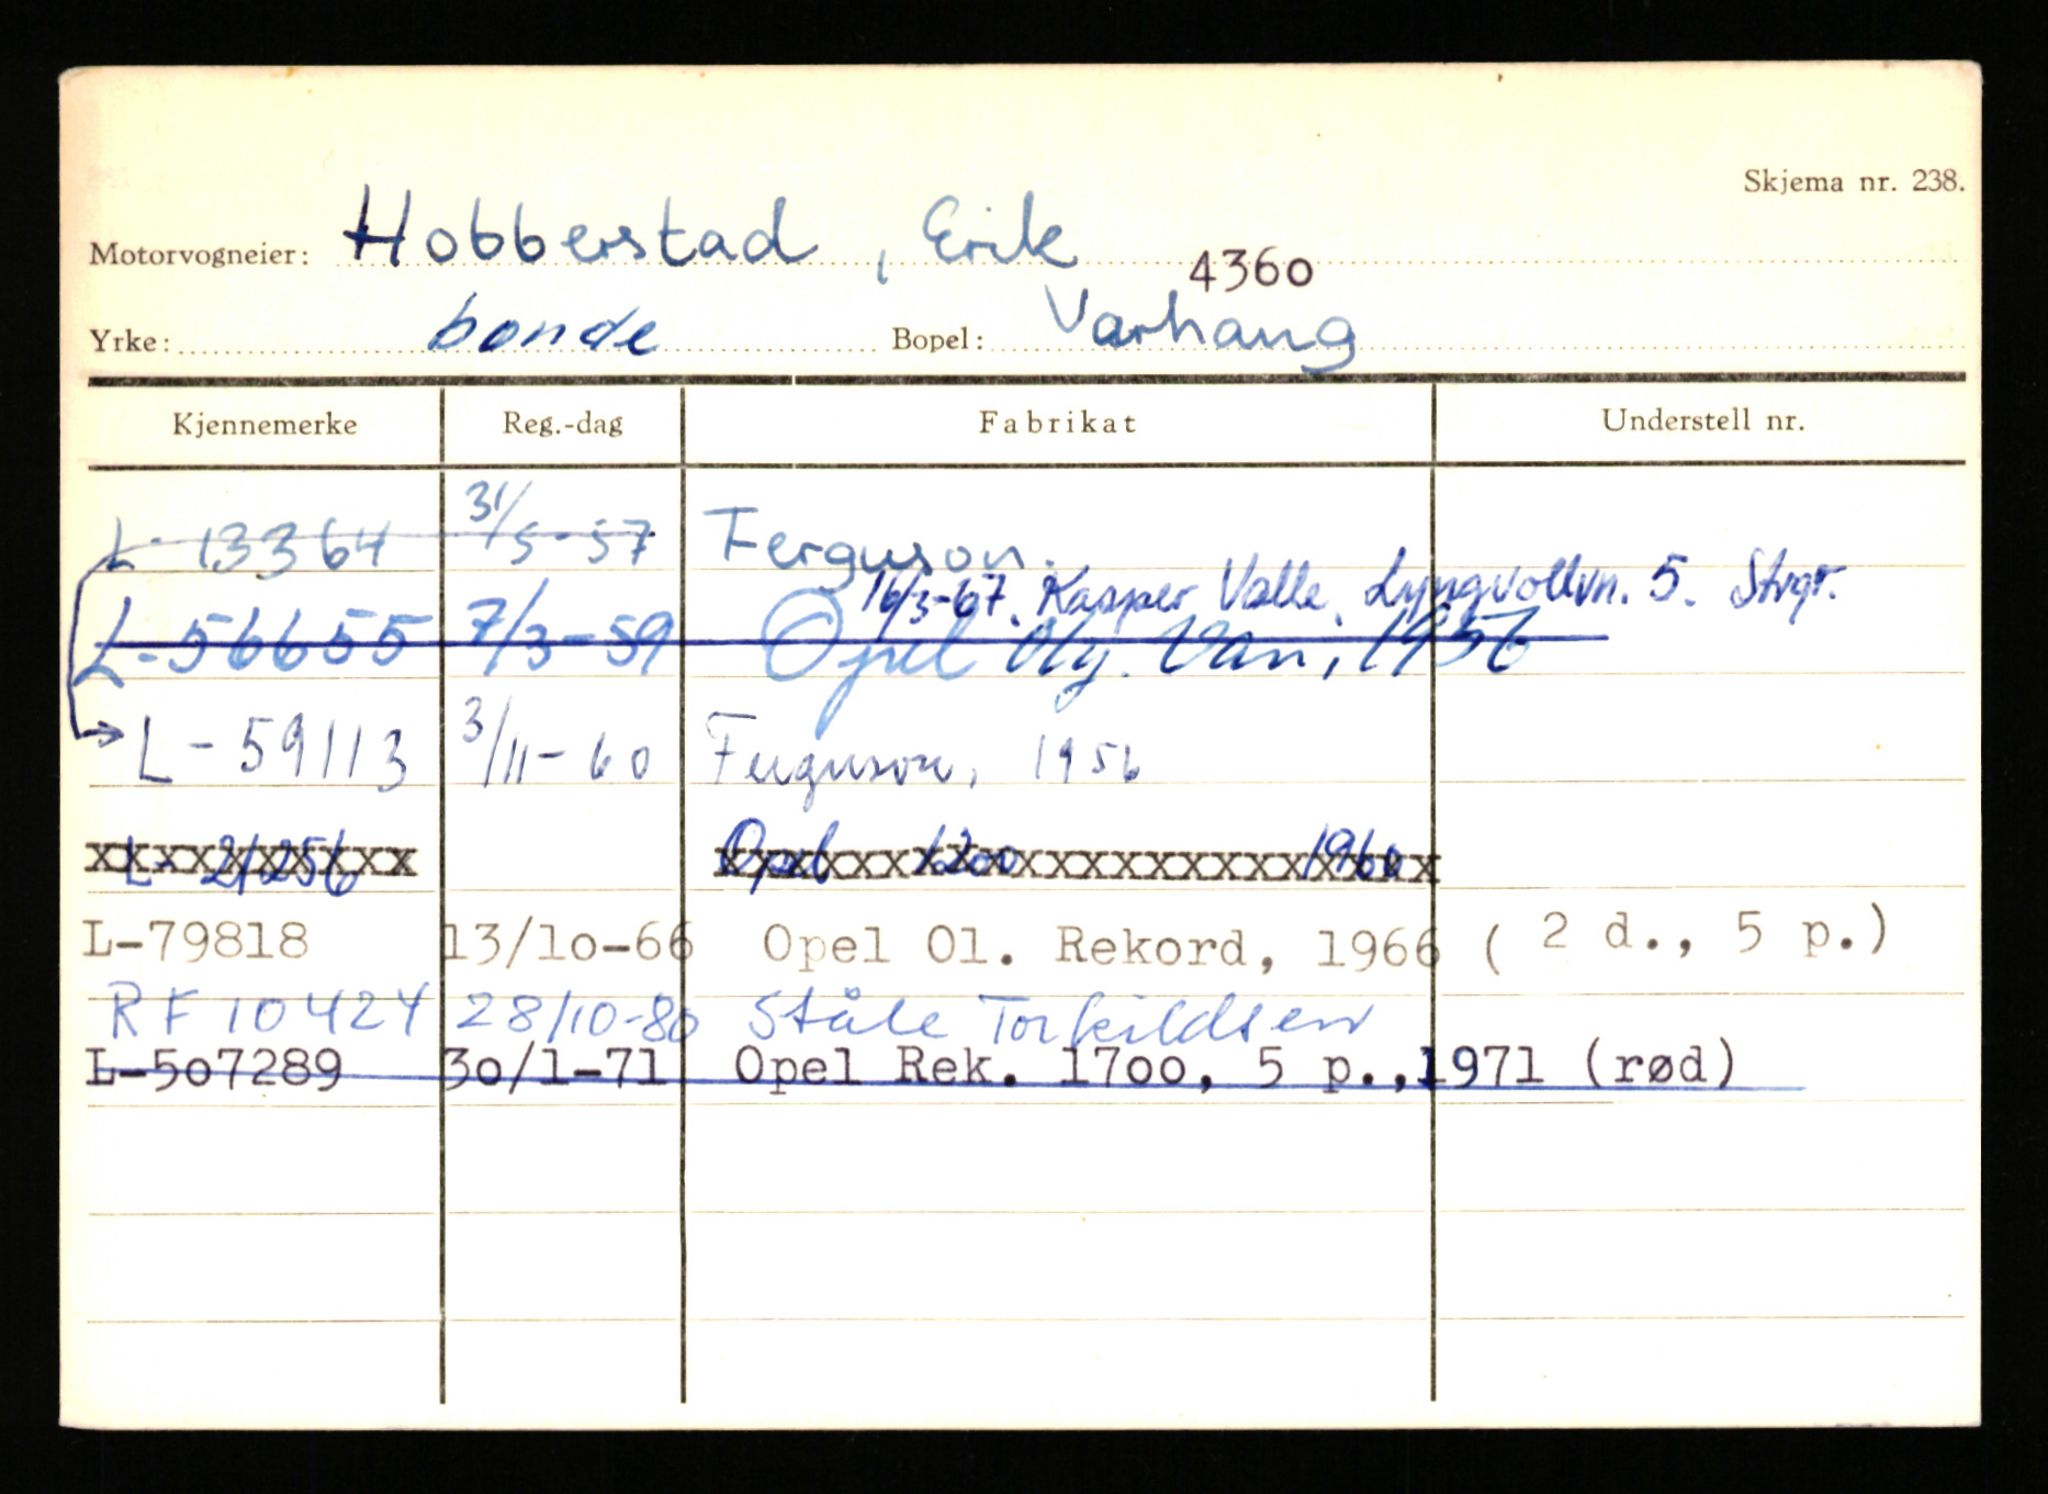 Skjema nr. 238.
Motorvogneier: Hobberstad, Erik
4360
Yrke: bonde Bopel: Varhaug
Kjennemerke Reg.-dag Fabrikat Understell nr.
L-13364 31/5-57 Ferguson.
16/3-67. Kasper Valle. Lyngvollvn. 5. Stvgr.
L-56655 7/3-59 Opel Oly. Van, 1956
L-59113 3/11-60 Ferguson, 1956
L-21256 Opel 1200 1960
L-79818 13/1o-66 Opel Ol. Rekord, 1966 ( 2 d., 5 p.)
RF 10424 28/10-80 Ståle Torkildsen
L-5o7289 3o/1-71 Opel Rek. 17oo, 5 p.,1971 (rød)